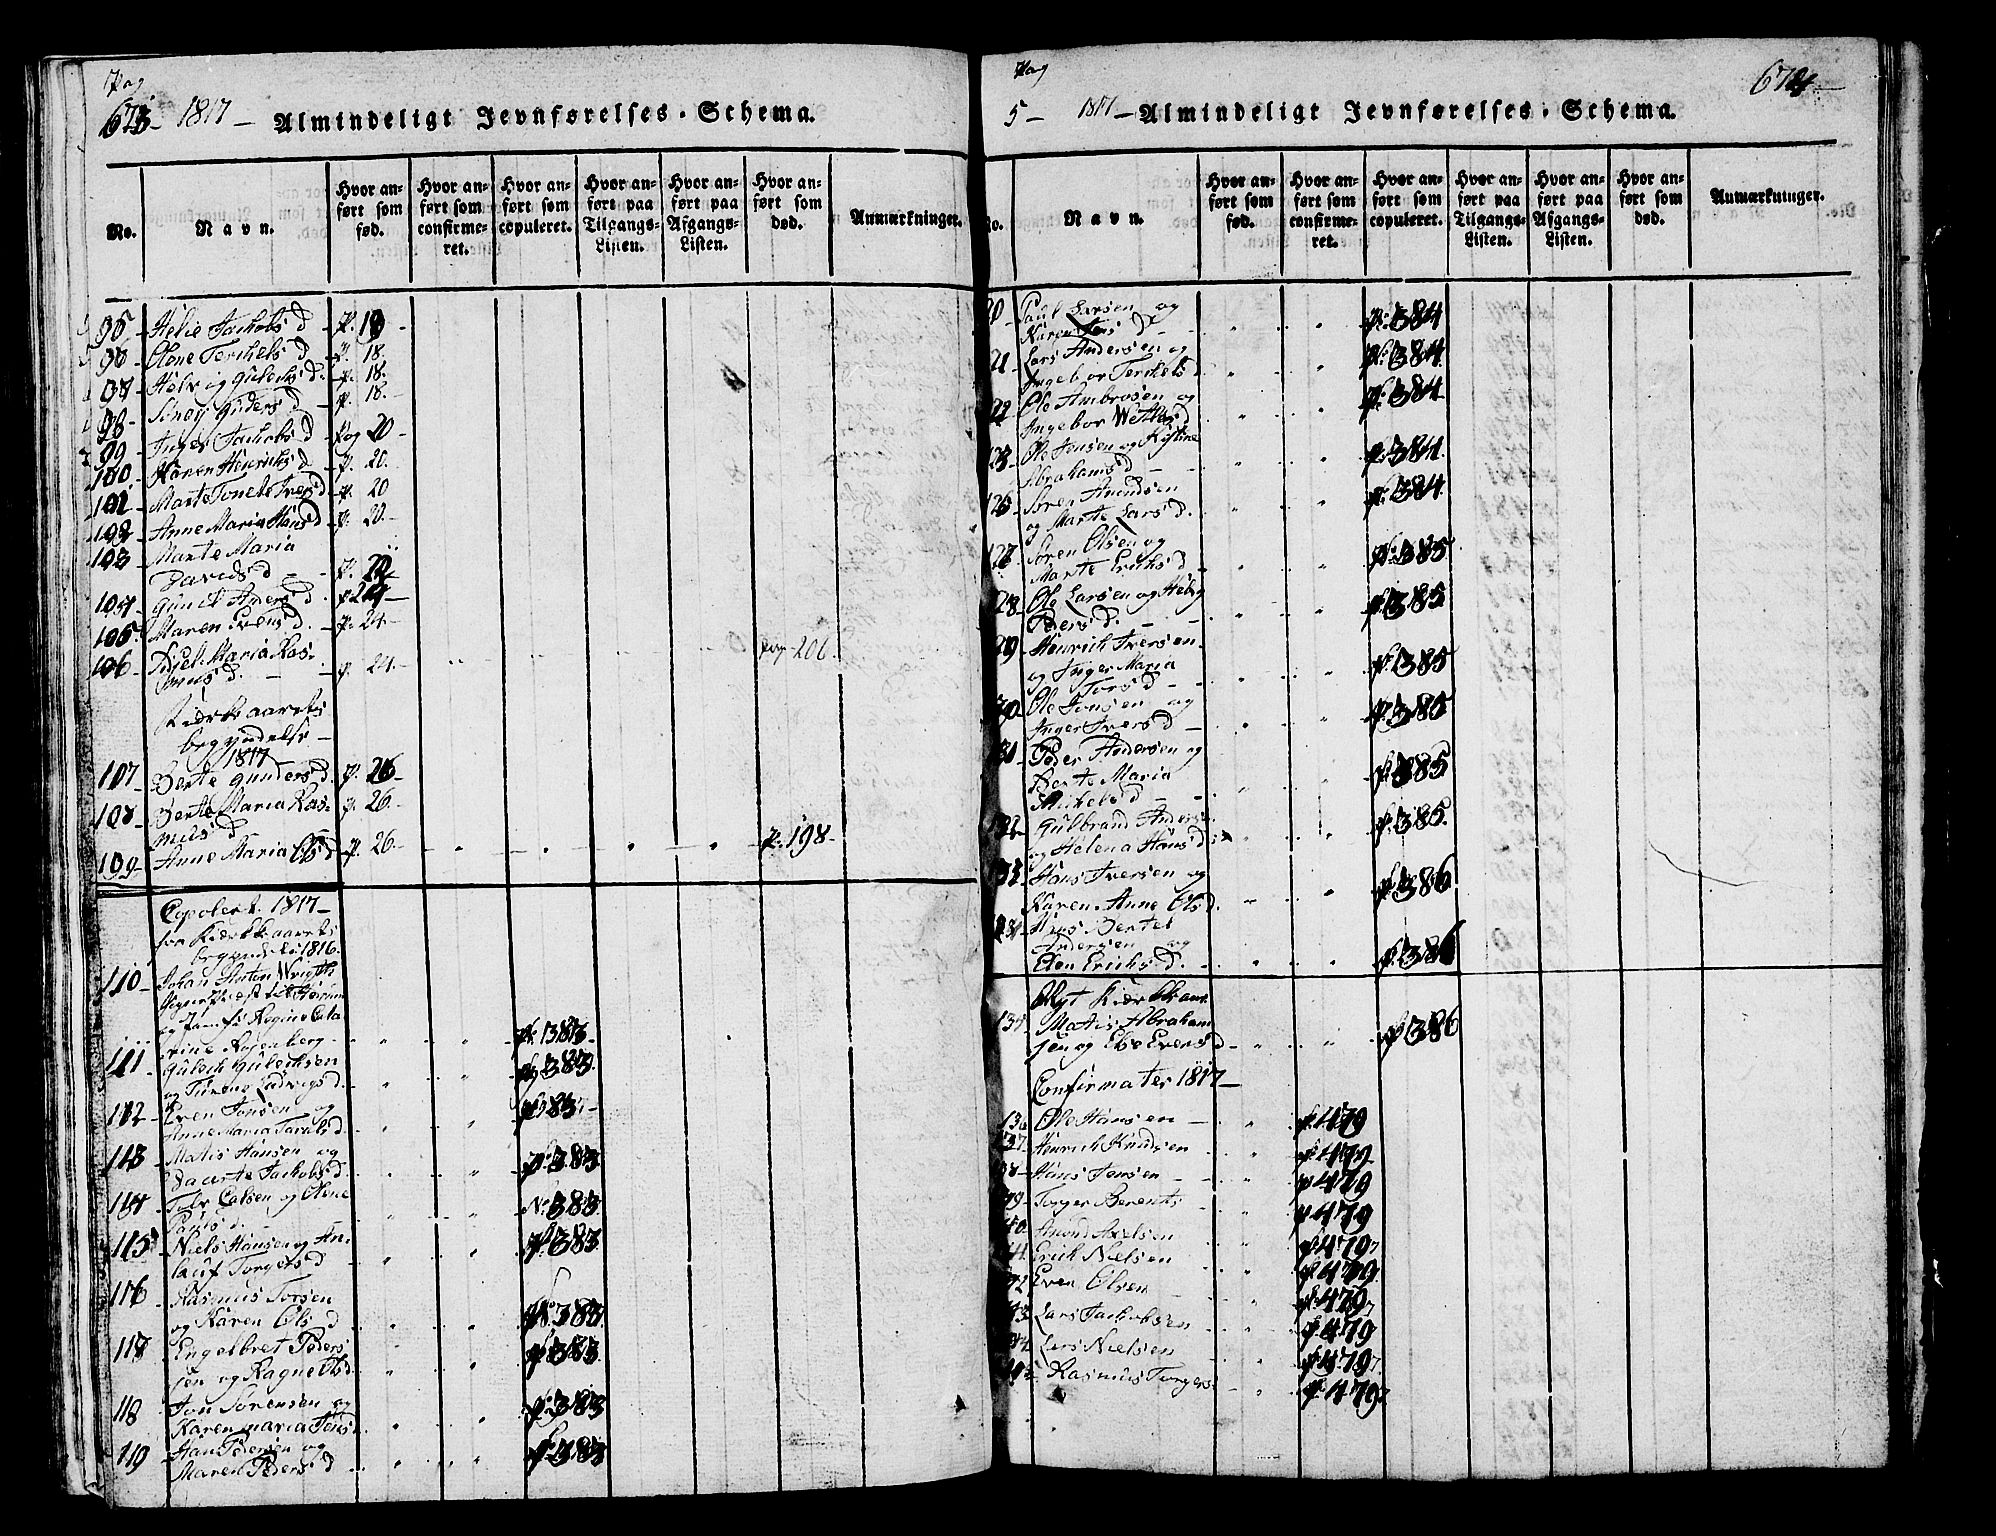 Pag
673 - 1817 - Almindeligt Jevnførelses-Schema.
No.
Navn.
Hvor an-
ført som
fød.
Hvor an-
ført som
confirme-
ret.
Hvor an-
ført som
copuleret.
Hvor an-
ført paa
Tilgangs-
Listen.
Hvor an-
ført paa
Afgangs-
Listen.
Hvor an-
ført som
død.
Anmærkninger.
95 - Helie Jachobs d - P. 19 -
Olene Terchels d - P. 18.
Helvig Gulechs d. - P. 18.
98 - Siney Gunders d - P. 18.
99 - Inger Jachobs d - Pag 20 -
100. Karen Henrichs d - P. 20.
101 - Marte Tonete Ivers d - P. 20
102 - Anne Maria Hans d - P. 20. -
103 - Marte Maria
Davids d - - P. 22
104 - Gunil Anders d. P. 24 -
105. Maren Evens d. - P. 24 -
106 - Maria Ras-
mus d. - - P. 24. - pag - 206.
Kirkeaarets
begyndelse -
1817
107 - Berte Gunders d. P. 26 -
108 - Berte Maria Ras- P. 26. -
mus d
109 - Anne Maria Ols d - P. 26. - P. 198 -
Copolert. 1817 -
for Kirkeaarets
begyndelse 1816.
110 - Johan Anten Wrigth
og Jomfr Regine Cata-
rine Rosenberg - P. 383 -
111 - Gulech Gulechsen
og Turene Ludvigs d. 383.
112 - Even Jonsen og
Anne Maria d. 383 -
113 - Matis Hansen og
Jachobs d. P. 383
114 Calsen og Olene
Pauls d. N. 383
115 - Niels Hansen og An-
lauf Torgers d P. 383
116 Rasmus Torsen
og Karen Ols d P. 383
117 Engelbret Peders-
sen og Ragne Ols d P. 383
118 Jon Sørensen og
Karen Maria Jens P. 383
119 - Hans Pedersen og
Maren Peders d P. 383
Pag
5 - 1817 - Almindeligt Jevnførelses-Schema.
674 -
No.
Navn.
Hvor an-
ført som
fød.
Hvor an-
ført som
confirme-
ret.
Hvor an-
ført som
copuleret.
Hvor an-
ført paa
Tilgangs-
Listen.
Hvor an-
ført paa
Afgangs-
Listen.
Hvor an-
ført som
død.
Anmærkninger.
20 - Paul Larsen og
Karen Lars d - - P. 384
21 - Lars Andersen og
Ingebor Terchels d P. 384
122 - Ole Ambrosen og
Ingebor d P. 384
Ole Jensen og Kistine
Abrahams d - - P. 384
126 - Søren Amundsen
og Marte Lars d. P. 384
127 - Søren Olsen og
Marte Erichs d - P. 385
28 - Ole Larsen og
Peders d. - P. 385
29 - Henrich Iversen
og Inger Maria
Tors d - - P. 385
Ole Jonsen og
Inger Ivers d - P. 385
31 - Peder Andersen og
Berte Maria
Michels d - - P. 385
Gulbrand Anders-
og Helena Hans d P. 385.
Hans Iversen og
Karen Anne Ols d. P. 386
Hans Bertel
Andersen og
Elen Erichs d. - P. 386
Nyt Kirkeaar
135 - Matis Abraham-
sen og Ebe Evens d P. 386
Confirmater 1817 -
Ole Hansen - P. 479
137 - Henrich Knudsen P. 479
Hans Jensen - P. 479
Torger Berents P. 479
40 - Amond Axelsen P. 479
Erich Nielsen P. 479
Even Olsen - P. 479
43 - Lars Jachobsen P. 479
Lars Nielsen P. 479
Rasmus Torgers P. 479.